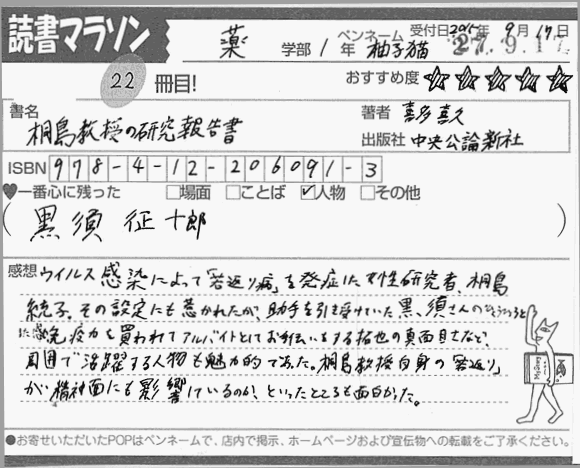 読書マラソン
薬 学部 1 年
ペンネーム 柚子猫
受付日 2015年 9月 17日
27. 9. 17
22 冊目!
おすすめ度 ☆☆☆☆☆
書名 桐島教授の研究報告書
著者 喜多喜久
出版社 中央公論新社
ISBN 978-4-12-206091-3
♥一番心に残った □場面 □ことば ☑人物 □その他
(黒須 征十郎)
感想 ウイルス感染によって「若返り病」を発症した女性研究者、桐島
統子。その設定にも惹かれたが、助手を引き受けていた黒須さんの
免疫力を買われてアルバイトとしてお手伝いをする拓也の真面目さなど、
周囲で活躍する人物も魅力的であった。桐島教授自身の「若返り」
が精神面にも影響しているのか、といったところも面白かった。
●お寄せいただいたPOPはペンネームで、店内で掲示、ホームページおよび宣伝物への転載をご了承ください。